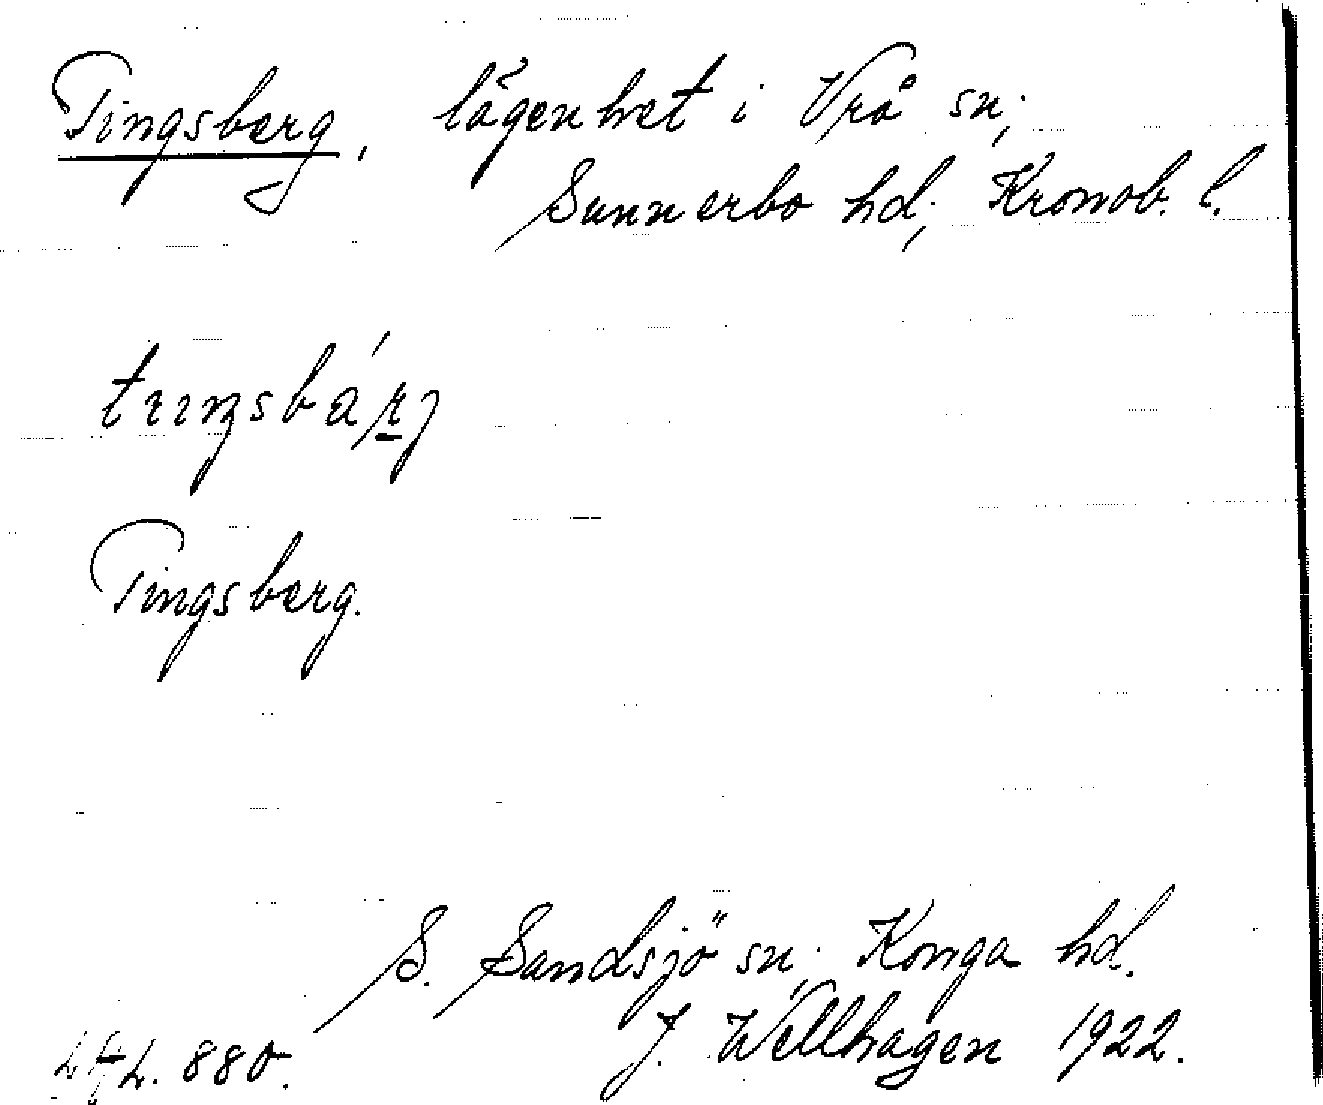 Tingsberg, lägenhet i Vrå sn,
Sunnerbo hd, Kronob. l.
Tingsberg.
S. Sandsjö sn, Konga hd.
880. J. Wellhagen 1922.